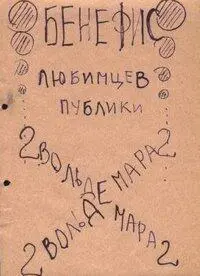 БЕНЕФИС
ЛЮБИМЦЕВ
ПУБЛИКИ
2 ВОЛЬДЕМАРА 2
2 ВОЛЬДЕМАРА 2